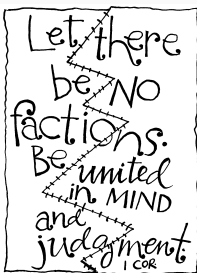 Let there
be NO
factions.
Be united
in MIND
and
judgment.
1 COR